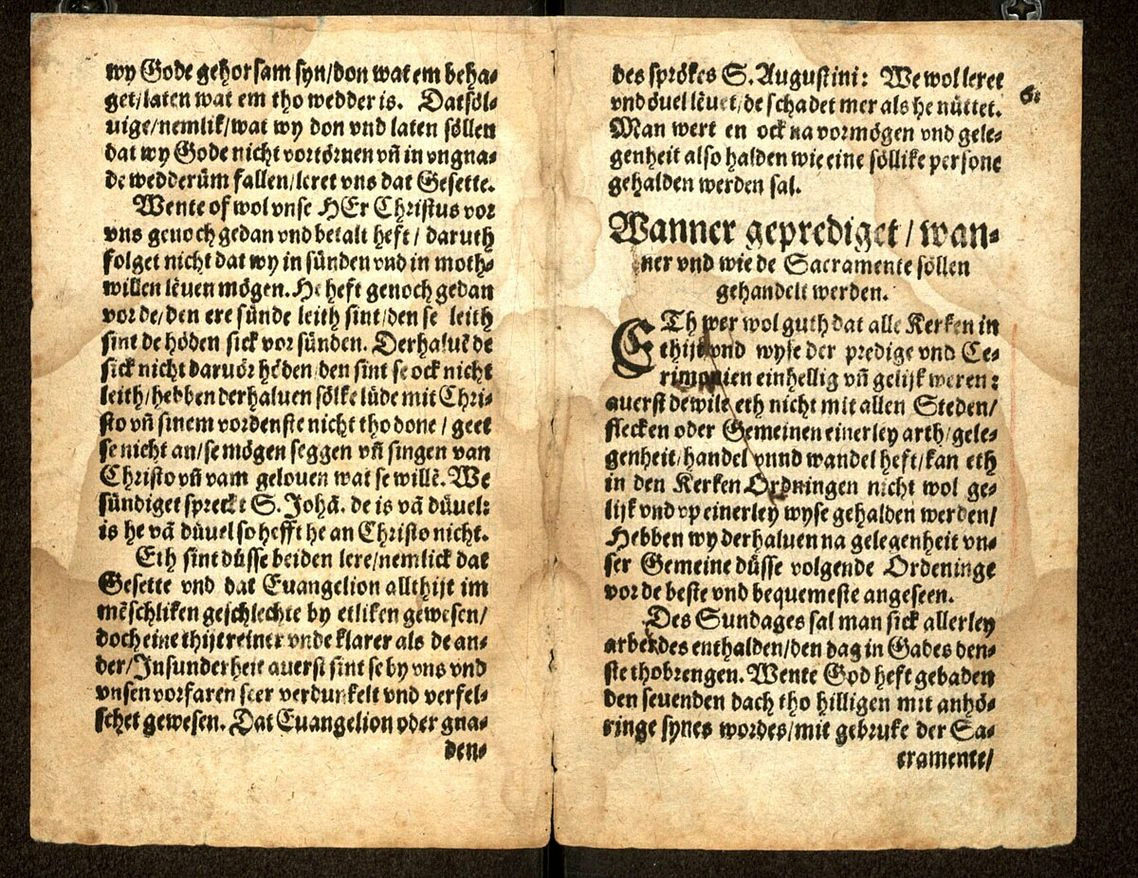 wy Gode gehorsam syn/don wat em beha⸗
get/laten wat em tho wedder is. Datsöl⸗
uige/nemlik/wat wy don vnd laten söllen
dat wy Gode nicht vortörnen vñ in vngna⸗
de wedderüm fallen/leret vns dat Gesette.
Wente of wol vnse HEr Christus vor
vns genoch gedan vnd betalt heft/ daruth
folget nicht dat wy in sünden vnd in moth⸗
willen lëuen mögen. He heft genoch gedan
vor de/den ere sünde leith sint/den se leith
sint de höden sick vor sünden. Derhaluē de
sick nicht daruör höden/den sint se ock nicht
leith/hebben derhaluen sölke lüde mit Chri⸗
sto vñ sinem vordenste nicht tho done / geet
se nicht an/se mögen seggen vñ singen van
Christo vñ vam gelouen wat se willē. We
sündiget spreckt S. Johā. de is vā düuel:
is he vā düuel so hefft he an Christo nicht.
Eth sint düsse beiden lere/nemlick dat
Gesette vnd dat Euangelion allthijt im
mēschliken geschlechte by etliken gewesen/
doch eine thijt reiner vnde klarer als de an⸗
der/Insunderheit auerst sint se by vns vnd
vnsen vorfaren seer verdunkelt vnd verfel⸗
schet gewesen. Dat Euangelion oder gna⸗
den⸗
des sprökes S. Augustini: We wol leret
vnd öuel lëuet/de schadet mer als he nüttet.
6:
Man wert en ock na vormögen vnd gele⸗
genheit also halden wie eine söllike persone
gehalden werden sal.
Wanner geprediget / wan⸗
ner vnd wie de Sacramente söllen
gehandelt werden.
ETh wer wol guth dat alle Kerken in
thijt vnd wyse der predige vnd Ce⸗
rimonien einhellig vñ gelijk weren:
auerst dewile eth nicht mit allen Steden/
flecken oder Gemeinen einerley arth/gele⸗
genheit/handel vnnd wandel heft/kan eth
in den Kerken Ordningen nicht wol ge⸗
lijk vnd vp einerley wyse gehalden werden/
Hebben wy derhaluen na gelegenheit vn⸗
ser Gemeine düsse volgende Ordeninge
vor de beste vnd bequemeste angeseen.
Des Sundages sal man sick allerley
arbeides enthalden/den dag in Gades den⸗
ste thobrengen. Wente God heft gebaden
den seuenden dach tho hilligen mit anhö⸗
ringe synes wordes/mit gebruke der Sa⸗
cramente/